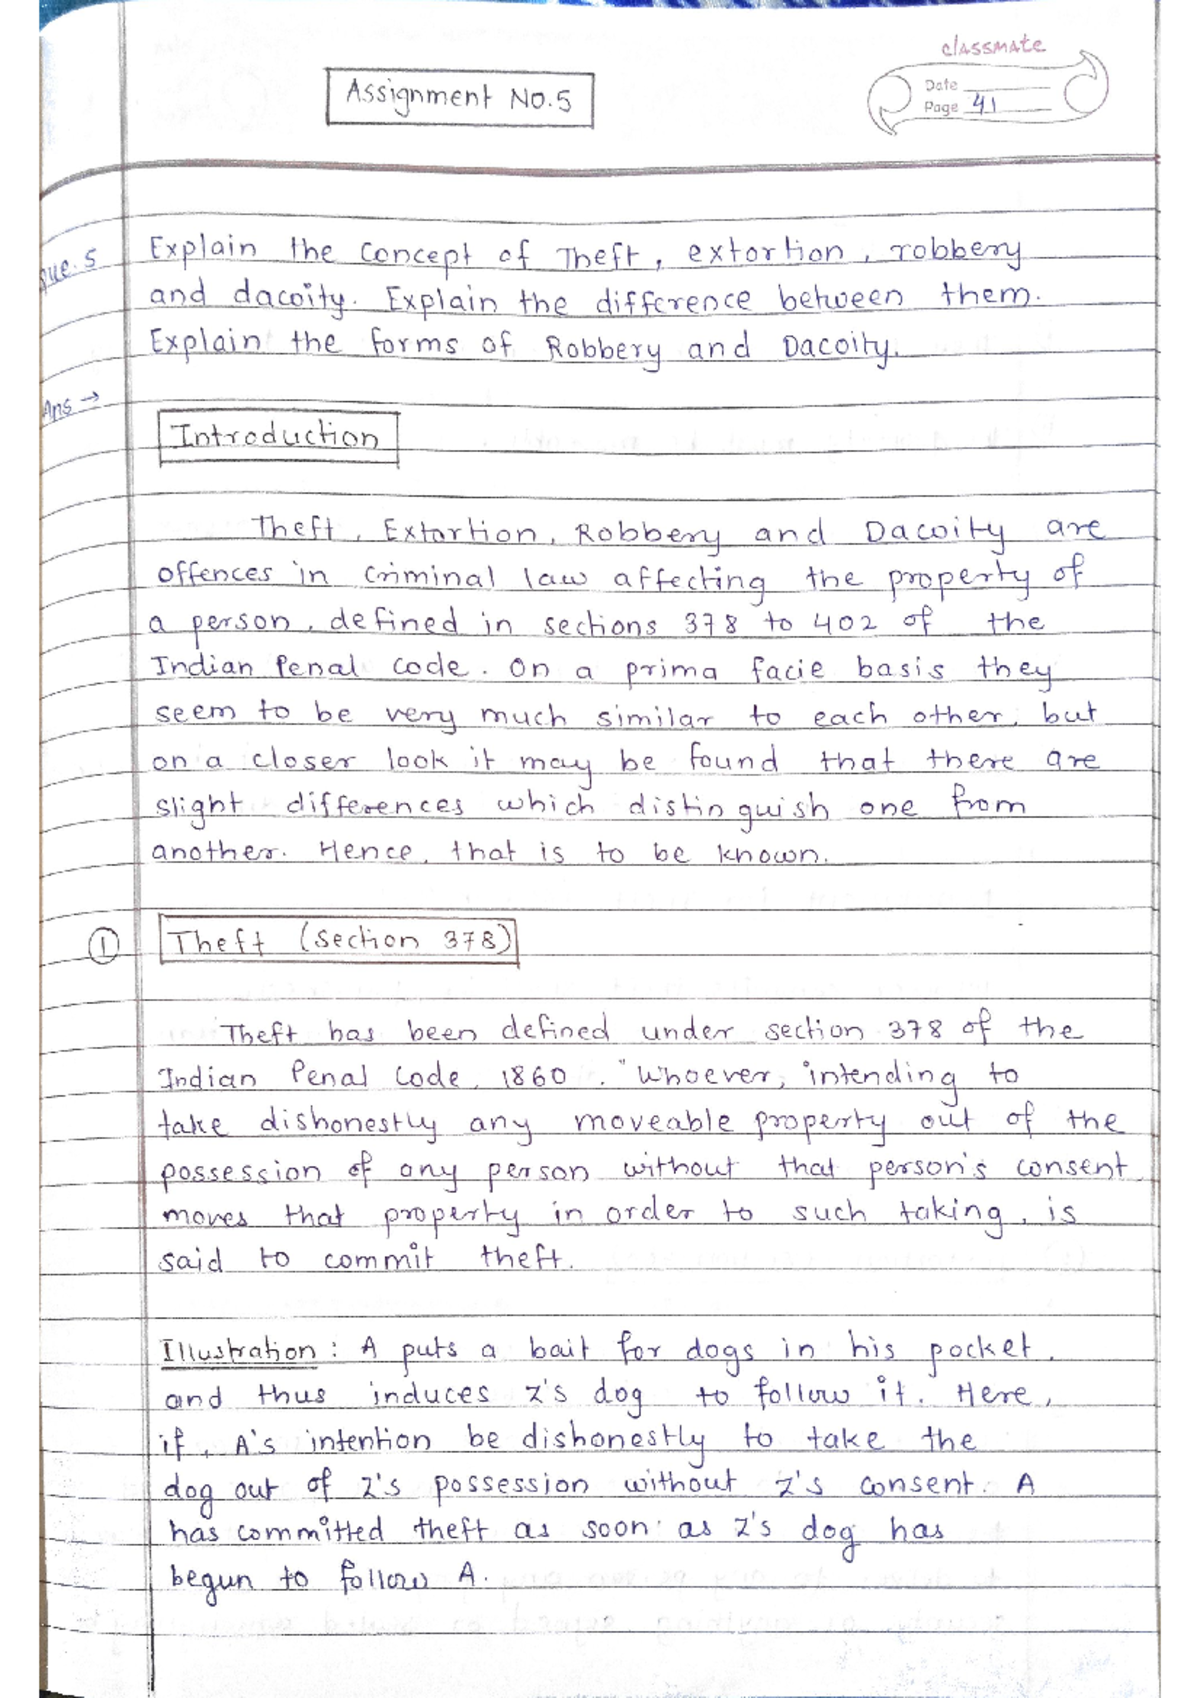 classmate
Date
Page 41
Assignment No.5
Que. 5
Explain the concept of Theft, extortion, robbery
and dacoity. Explain the difference between them.
Explain the forms of Robbery and Dacoity.
Ans →
Introduction
Theft, Extortion, Robbery and Dacoity are
offences in criminal law affecting the property of
a person, defined in sections 378 to 402 of the
Indian Penal code. On a prima facie basis they
seem to be very much similar to each other, but
on a closer look it may be found that there are
slight differences which distinguish one from
another. Hence, that is to be known.
① Theft (Section 378)
Theft has been defined under section 378 of the
Indian Penal Code, 1860. "Whoever, intending to
take dishonestly any moveable property out of the
possession of any person without that person's consent,
moves that property in order to such taking, is
said to commit theft.
Illustration : A puts a bait for dogs in his pocket,
and thus induces Z's dog to follow it. Here,
if, A's intention be dishonestly to take the
dog out of Z's possession without Z's consent. A
has committed theft as soon as Z's dog has
begun to follow A.